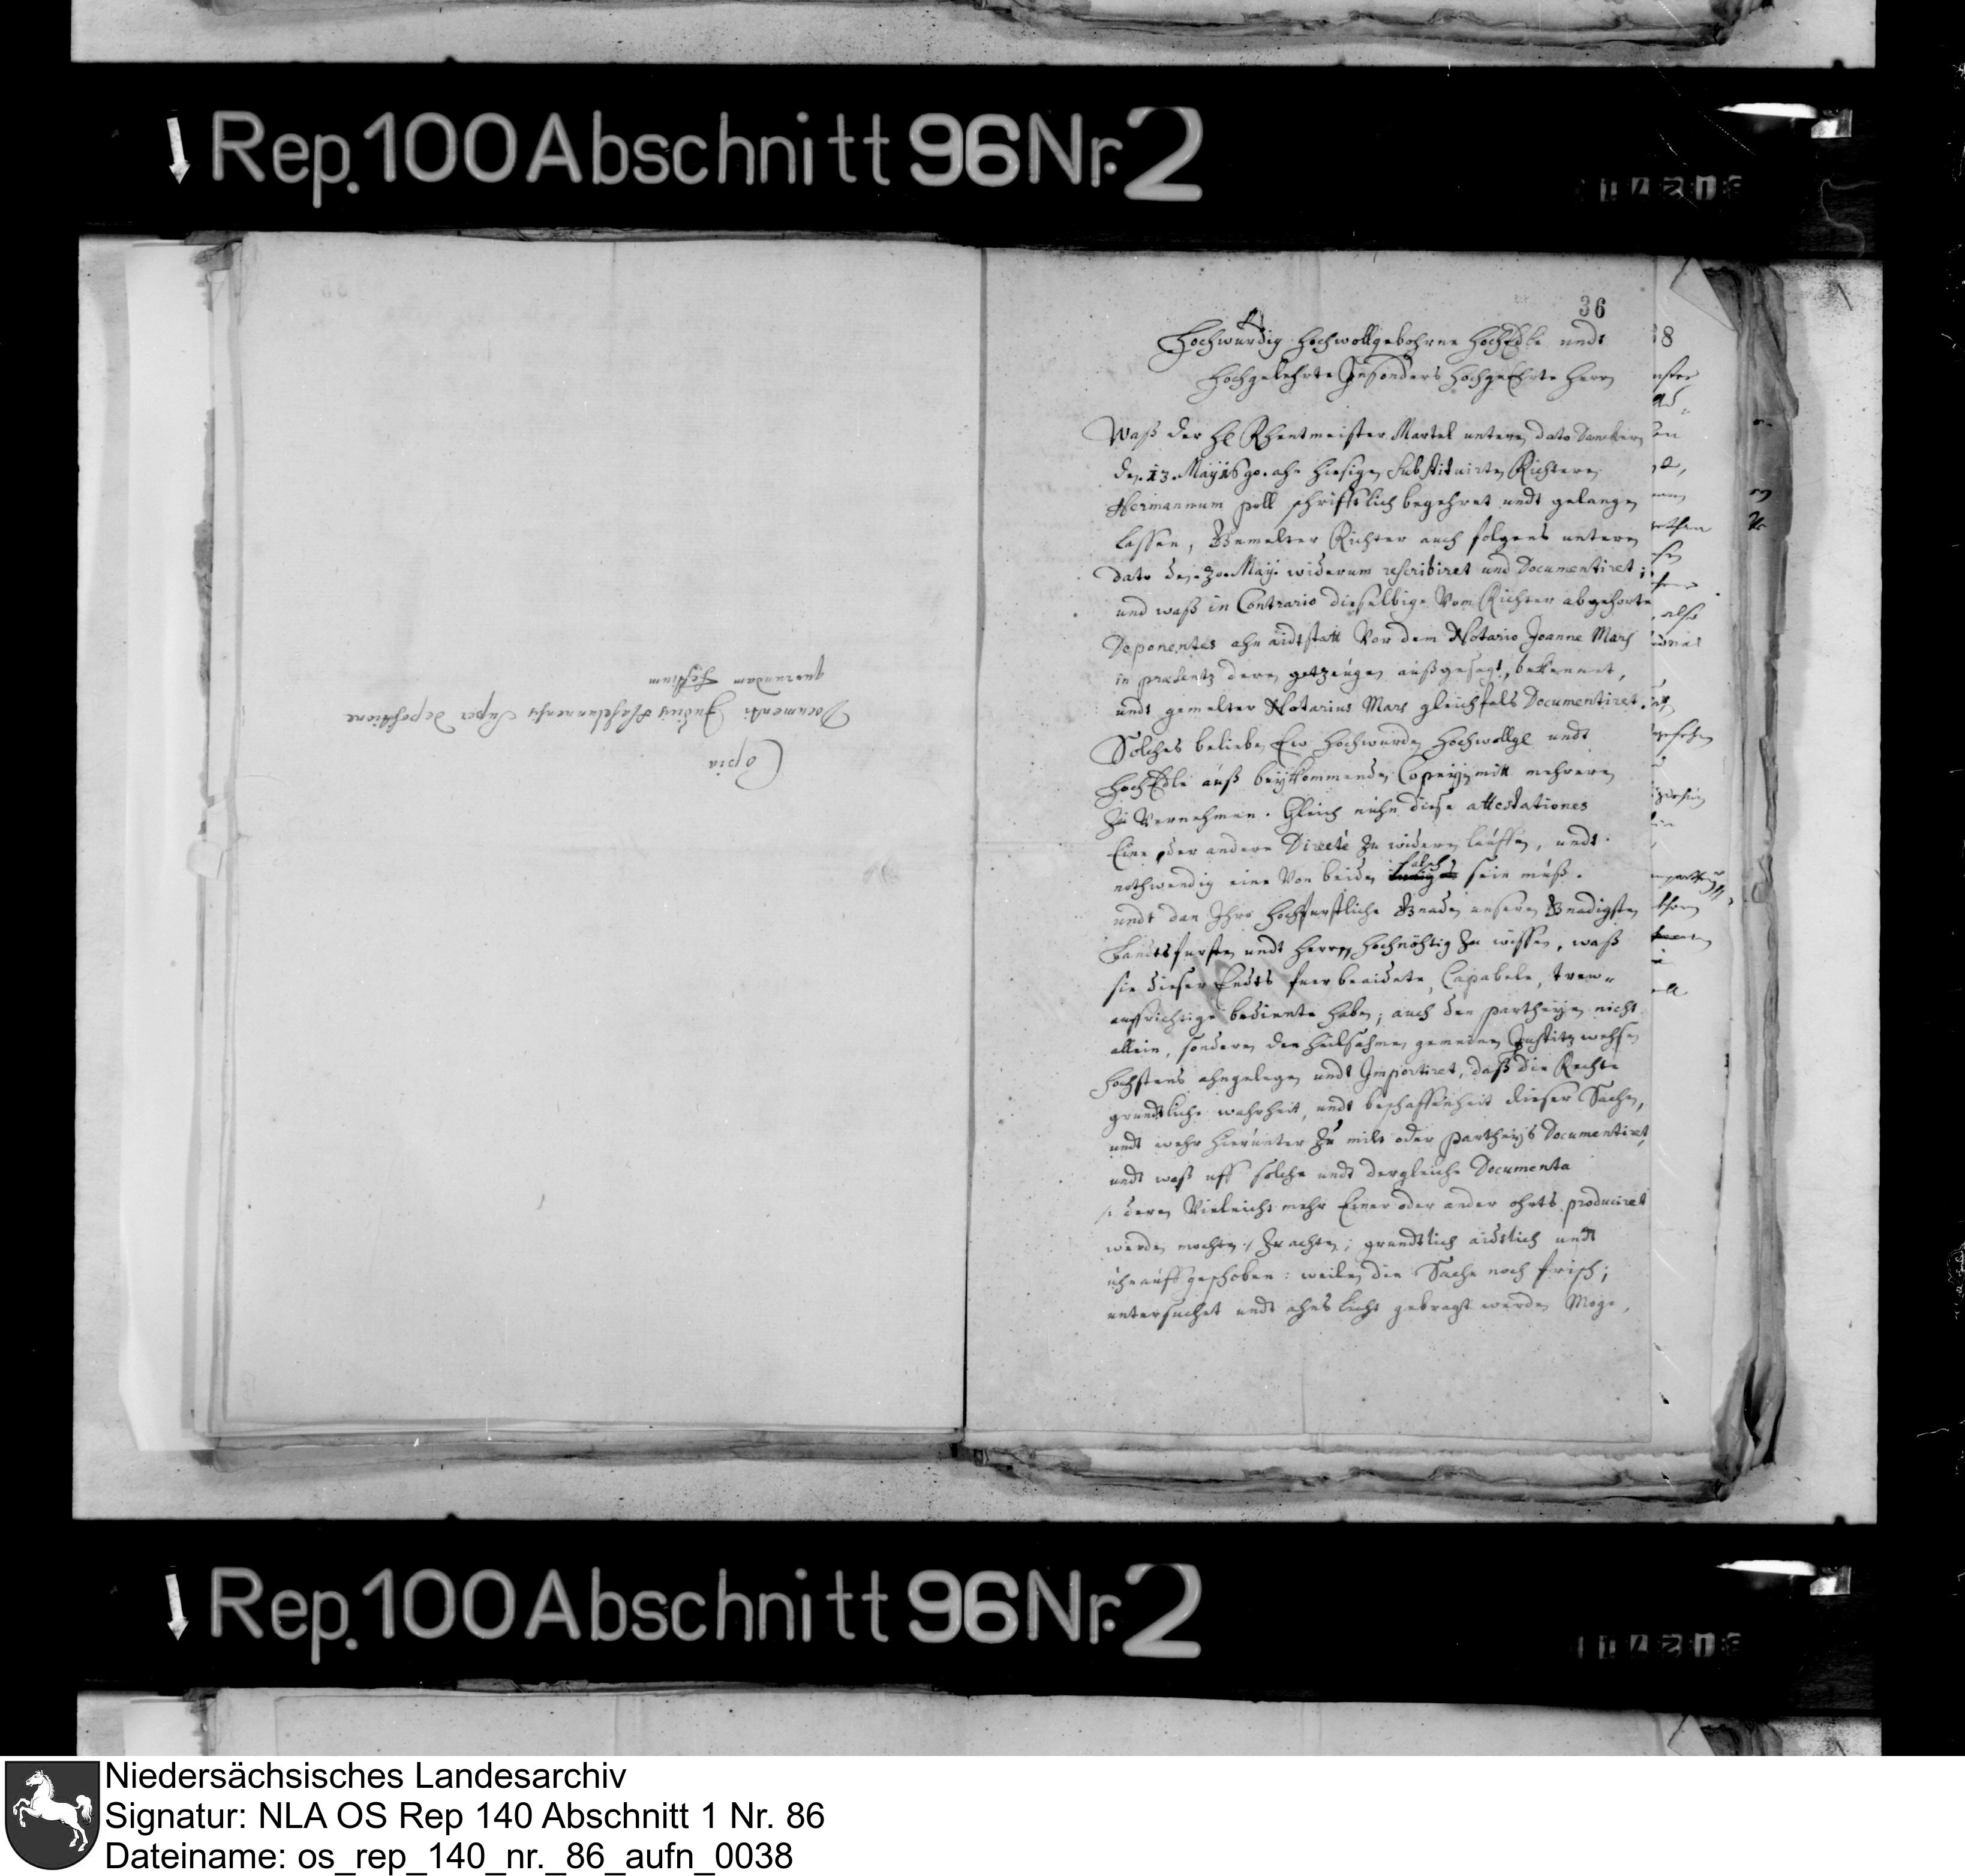 Rep. 100 Abschnitt 96 Nr. 2
Copia
Documenti Judicis Haselunnensis super depositione
quorundam testium
36
Hochwürdig Hochwollgebohrne HochEdle undt
Hochgelehrte Insonders Hochgeehrte Herrn
Waß der H. Rhentmeister Martel unterm dato Dancker
den 13. May 1690. ahn hiesigen substituirten Richteren
Hermannum poll schrifftlich begehret undt gelangen
lassen, Gemelter Richter auch folgens unterm
dato den 20. May. widerum rescribiret und Documentiret;
und waß in Contrario dieselbige Vom Richter abgehorte
Deponentes ahn aidtstatt Vor dem Notario Joanne Mars
in praesentz deren getzeugen außgesagt, bekennet,
undt gemelter Notarius Mars gleichfals Documentiret.
Solches belieben Ew Hochwürden Hochwollge undt
HochEdle auß beykommenden Copeyen mitt mehreren
Zu Vernehmen. Gleich nuhn diese attestationes
Eine der andere Directe zu wideren lauffen, undt
nothwendig eine Von beiden falsch sein muß.
undt dan Ihro Hochfurstliche Gnaden unseren Gnadigsten
Landtsfursten undt Herren hochnöhtig zu wissen, waß
sie dieser Endts fuer beaidete, Capabele, trew-
auffrichtige bediente haben; auch den partheyen nicht
allein, sonderen den heilsahmen gemeinen Justitzwesen
hochstens ahngelegen undt Importiret, daß die Rechte
grundtliche wahrheit, undt beschaffenheit dieser Sachen,
undt wehr hierunter zu milt oder partheys Documentiret,
undt waß uff solche undt dergleiche Documenta
/: deren Vieleicht mehr Einer oder ander ohrts produciret
werden mochten :/ zu achten; grundtlich aidtlich undt
uhnauffgeschoben: weilen die Sache noch frisch;
untersuchet undt ahns licht gebragt werden Moge,
38
Rep. 100 Abschnitt 96 Nr. 2
Niedersächsisches Landesarchiv
Signatur: NLA OS Rep 140 Abschnitt 1 Nr. 86
Dateiname: os_rep_140_nr._86_aufn_0038